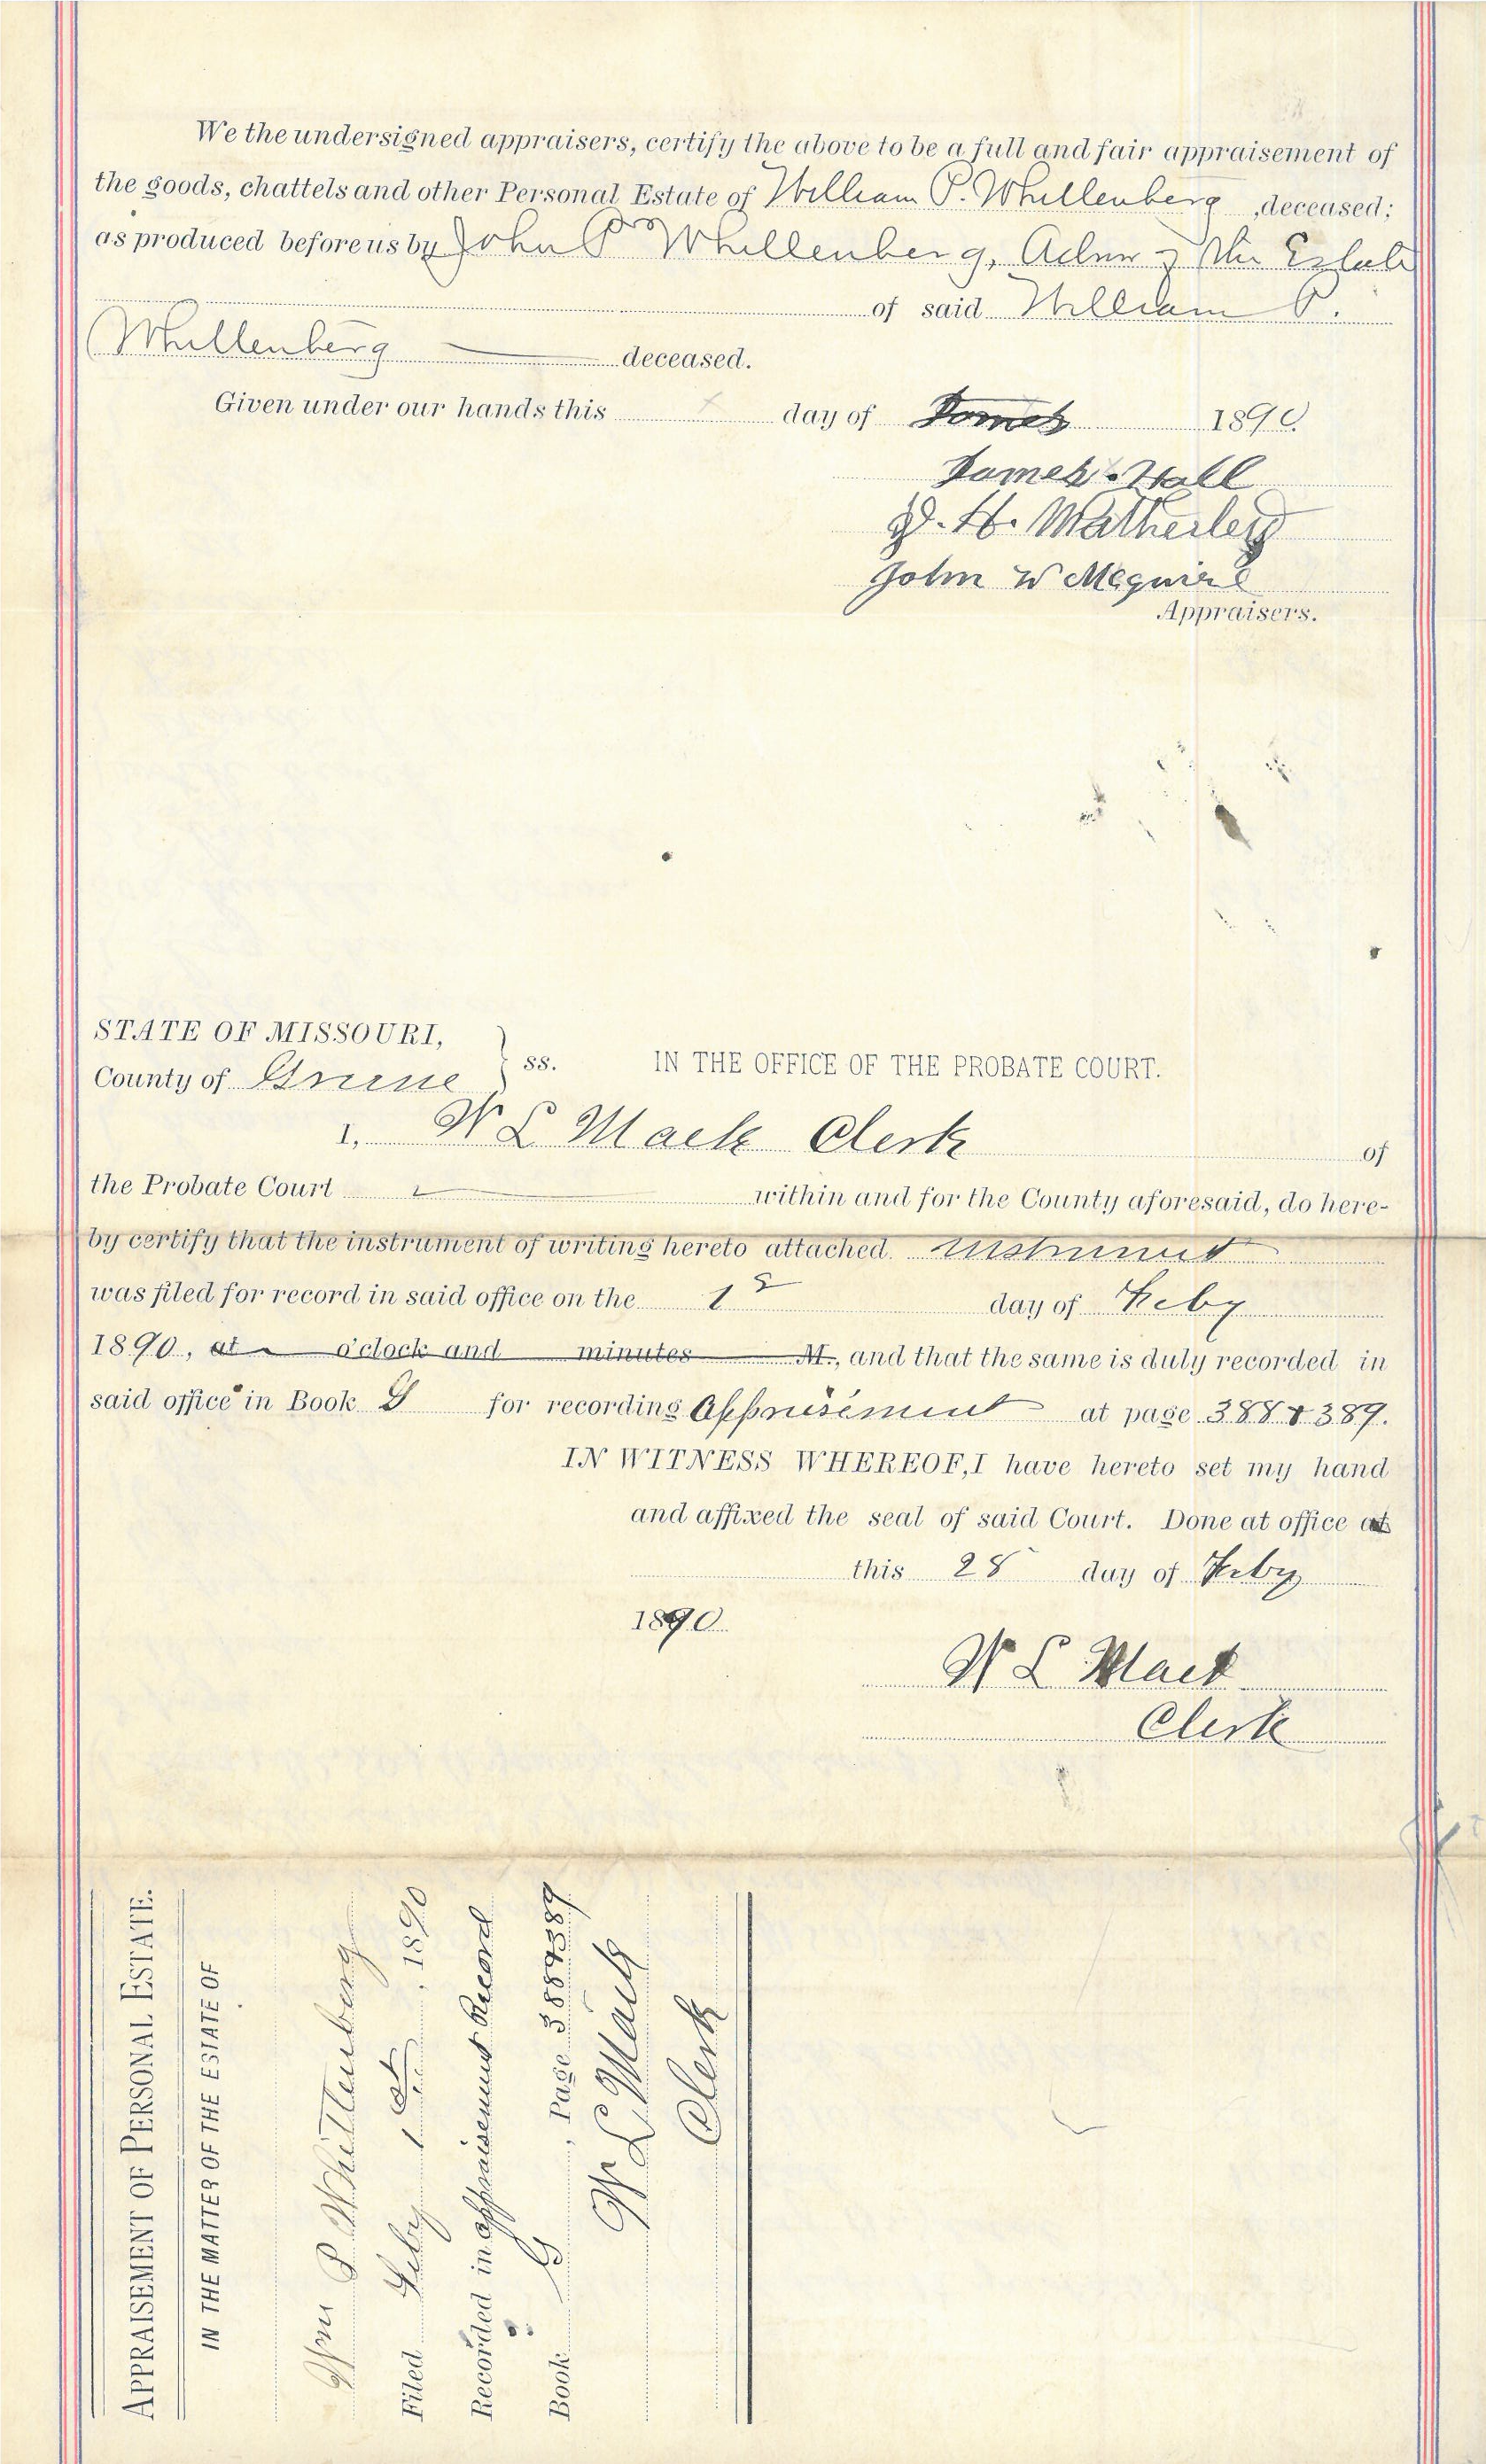 We the undersigned appraisers, certify the above to be a full and fair appraisement of
the goods, chattels and other Personal Estate of William P. Whittenberg, deceased;
as produced before us by John P Whittenberg, Admr of the Estate
of said William P.
Whittenberg deceased.
Given under our hands this day of James 1890.
James Hall
H. Matherley
John W Meguire
Appraisers.
STATE OF MISSOURI,
County of Greene } ss. IN THE OFFICE OF THE PROBATE COURT.
I, W L Mack Clerk of
the Probate Court within and for the County aforesaid, do here-
by certify that the instrument of writing hereto attached instrument
was filed for record in said office on the 1st day of Feby
1890, at o'clock and minutes M., and that the same is duly recorded in
said office in Book G for recording Appraisement at page 388 & 389.
IN WITNESS WHEREOF, I have hereto set my hand
and affixed the seal of said Court. Done at office at
this 28 day of Feby
1890
W L Mack
Clerk
APPRAISEMENT OF PERSONAL ESTATE.
IN THE MATTER OF THE ESTATE OF
Wm P Whittenberg
Filed Feby 1st, 1890
Recorded in appraisement Record
Book G, Page 388&389
W L Mack
Clerk